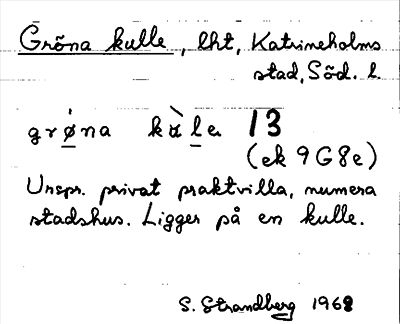 Gröna kulle, lht, Katrineholms
stad, Söd. l.
grǿ̱na kù̱ḻe 13
(ek 9G8e)
Urspr. privat praktvilla, numera
stadshus. Ligger på en kulle.
S. Strandberg 1968